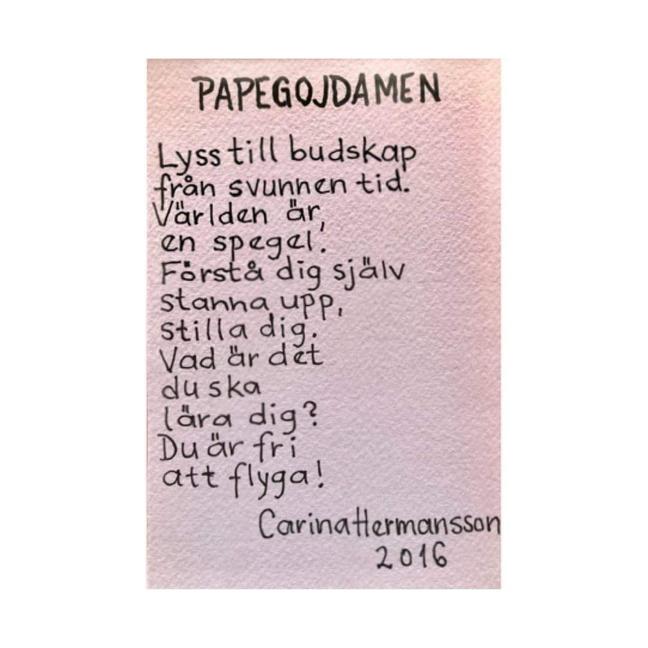 PAPEGOJDAMEN
Lyss till budskap
från svunnen tid.
Världen är,
en spegel!
Förstå dig själv
stanna upp,
stilla dig.
Vad är det
du ska
lära dig?
Du är fri
att flyga!
Carina Hermansson
2016